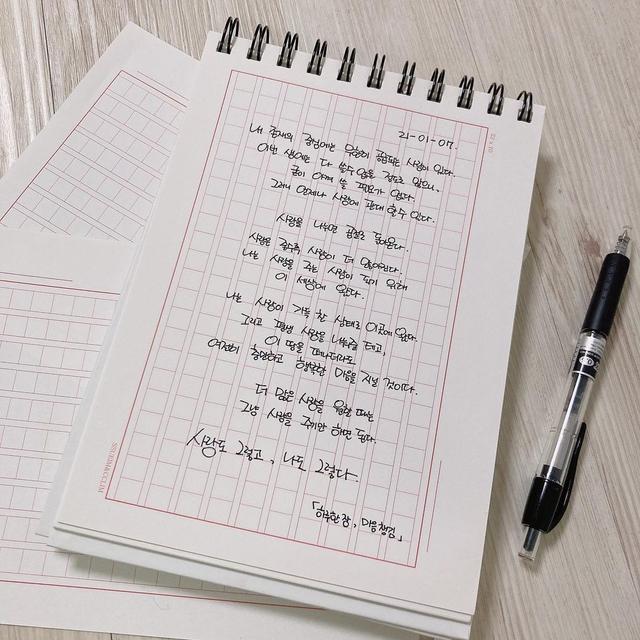 21-01-07.
내 존재의 중심에는 무한히 공급되는 사랑이 있다.
이번 생에는 다 쓸수 없을 정도로 많으니,
굳이 아껴 쓸 필요가 없다.
그러니 언제나 사랑에 관대할 수 있다.
사랑을 나누면 곱절로 돌아온다.
사랑은 줄수록 사랑이 더 많아진다.
나는 사랑을 주는 사람이 되기 위해
이 세상에 왔다.
나는 사랑이 가득 찬 상태로 이곳에 왔다.
그리고 평생 사랑을 나눠줄 테고,
이 땅을 떠나더라도
여전히 충만하고 행복한 마음을 지닐 것이다.
더 많은 사랑을 원할 때는
그냥 사랑을 주기만 하면 된다.
사랑도 그렇고, 나도 그렇다.
「하루한장, 마음챙김」